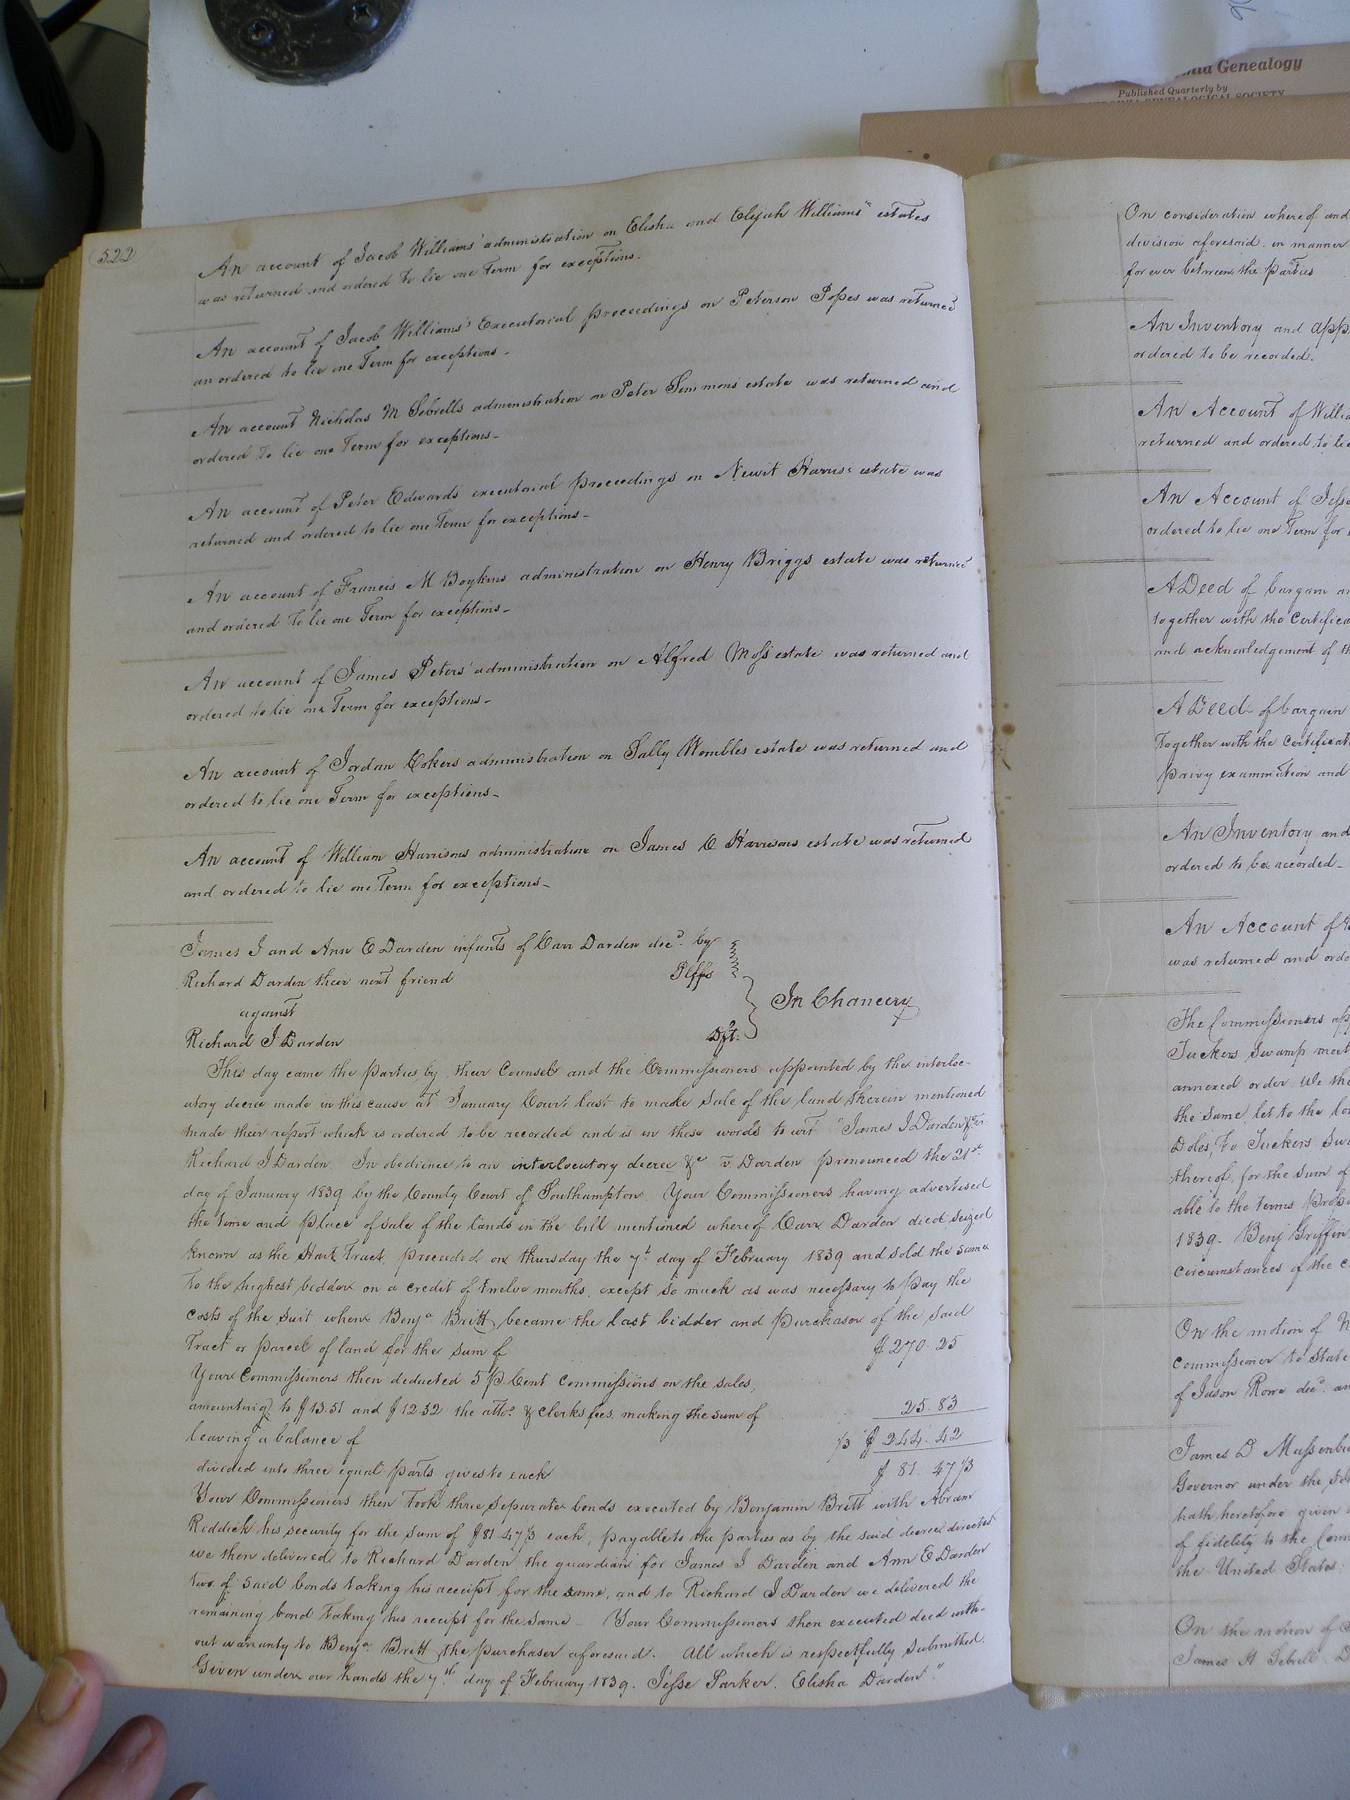 522
An account of Jacob Williams' administration on Elisha and Elijah Williams' estates
was returned and ordered to lie one Term for exceptions.
An account of Jacob Williams' Executorial proceedings on Peterson Popes was returned
an ordered to lie one Term for exceptions-
An account Nicholas M Sebrells administration on Peter Simmons estate was returned and
ordered to lie one Term for exceptions-
An account of Peter Edwards executorial proceedings on Newit Harris' estate was
returned and ordered to lie one Term for exceptions-
An account of Francis M Boykins administration on Henry Briggs estate was returned
and ordered to lie one Term for exceptions-
An account of James Peters' administration on Alfred Moss' estate was returned and
ordered to lie one Term for exceptions-
An account of Jordan Cokers administration on Sally Wombles estate was returned and
ordered to lie one Term for exceptions-
An account of William Harrisons administration on James C Harrisons estate was returned
and ordered to lie one Term for exceptions-
James J and Ann E Darden infants of Carr Darden decd. by
Richard Darden their next friend Plffs
against In Chancery
Richard J Darden Dft.
This day came the parties by their Counsel and the Commissioners appointed by the interloc-
utory decree made in this cause at January Court last to made sale of the land therein mentioned
made their report which is ordered to be recorded and is in these words to wit "James J Darden &c vs
Richard J Darden. In obedience to an interlocutory decree &c v Darden pronounced the 21st
day of January 1839 by the County Court of Southampton Your Commissioners having advertised
the time and place of sale of the lands in the bill mentioned whereof Carr Darden died seized
known as the Hart Tract, preceded on thursday the 7th day of February 1839 and sold the same
to the highest bidder on a credit of twelve months, except so much as was necessary to pay the
costs of the suit where Benja Britt became the last bidder and purchaser of the said
Tract or parcel of land for the sum of $270.25
Your Commissioners then deducted 5 p Cent commissions on the sales,
amounting to $13.51 and $12.32 the atto. & clerks fees, making the sum of 25.83
leaving a balance of /3 $244.42
divided into three equal parts gives to each $81.47 1/3
Your Commissioners then Took three separate bonds executed by Benjamin Britt with Abram
Reddick his security for the sum of $81.47 1/3 each, payable to the parties as by the said decree directed
we then delivered to Richard Darden the guardian for James J Darden and Ann E Darden
two of said bonds taking his receipt for the same, and to Richard J Darden we delivered the
remaining bond taking his receipt for the same - Your Commissioners then executed deed with-
out warranty to Benja. Britt the purchaser aforesaid. All which is respectfully submitted.
Given under our hands the 7th day of February 1839. Jesse Parker. Elisha Darden."
Genealogy
Published Quarterly by
GENEALOGICAL SOCIETY
On consideration whereof and
division aforesaid in manner
forever between the parties
An Inventory and app
ordered to be recorded.
An Account of Willia
returned and ordered to lie
An Account of Jesse
ordered to lie one Term for
A Deed of bargain an
together with the Certifica
and acknowledgement of th
A Deed of bargain
Together with the Certificat
privy examination and
An Inventory and
ordered to be recorded-
An Account of
was returned and orde
The Commissioners app
Tuckers Swamp meet
annexed order We the
the same let to the lo
Doles, to Tuckers Swa
thereof, for the sum of
able to the terms propo
1839. Benj Griffin
circumstances of the c
On the motion of
commissioner to state
of Jason Rowe decd. an
James D Massenbu
Governor under the
hath heretofore given
of fidelity to the Com
the United States:
On the motion of
James H Sebrell D